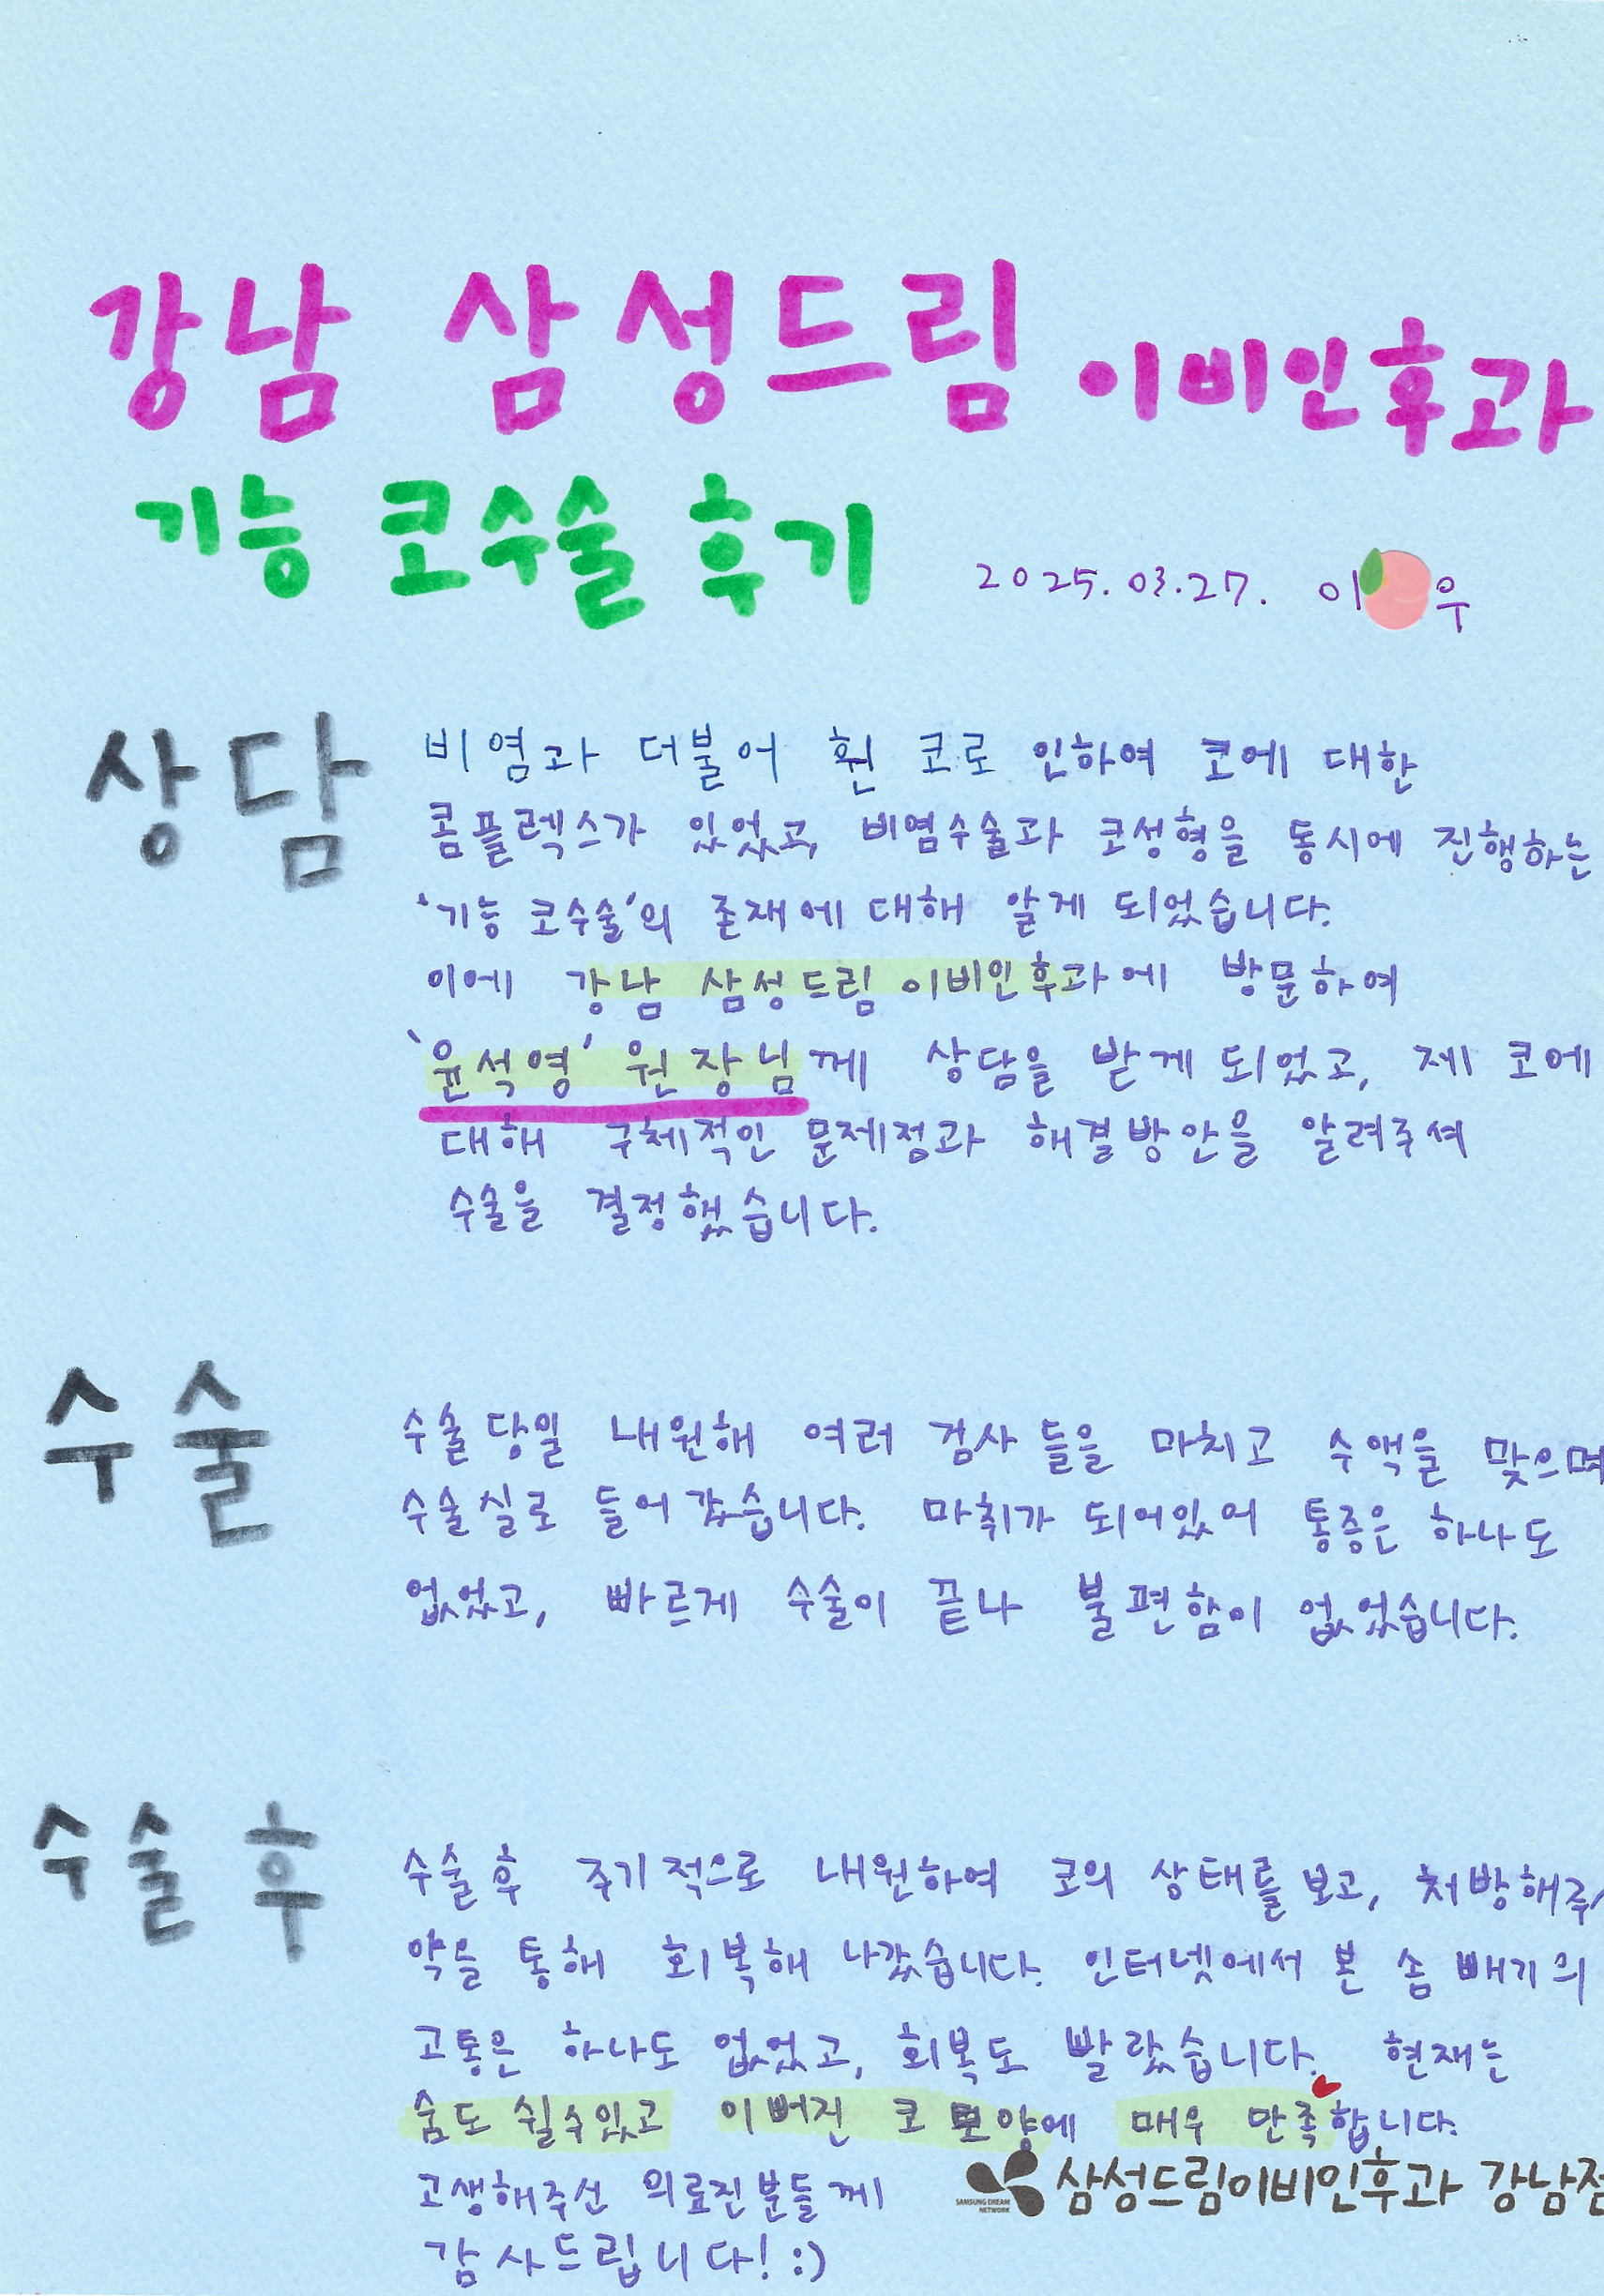 강남 삼성드림 이비인후과
기능 코수술 후기
2025.03.27. 이 우
상담
비염과 더불어 휜 코로 인하여 코에 대한
콤플렉스가 있었고, 비염수술과 코성형을 동시에 진행하는
'기능 코수술'의 존재에 대해 알게 되었습니다.
이에 강남 삼성드림 이비인후과에 방문하여
'윤석영' 원장님께 상담을 받게 되었고, 제 코에
대해 구체적인 문제점과 해결방안을 알려주셔
수술을 결정했습니다.
수술
수술 당일 내원해 여러 검사 들을 마치고 수액을 맞으며
수술실로 들어갔습니다. 마취가 되어있어 통증은 하나도
없었고, 빠르게 수술이 끝나 불편함이 없었습니다.
수술 후
수술 후 주기적으로 내원하여 코의 상태를 보고, 처방해주
약을 통해 회복해 나갔습니다. 인터넷에서 본 솜 빼기의
고통은 하나도 없었고, 회복도 빨랐습니다. 현재는
숨도 쉴수있고 이뻐진 코 모양에 매우 만족합니다.
고생해주신 의료진분들께
감사드립니다! :)
SAMSUNG DREAM
NETWORK
삼성드림이비인후과 강남점